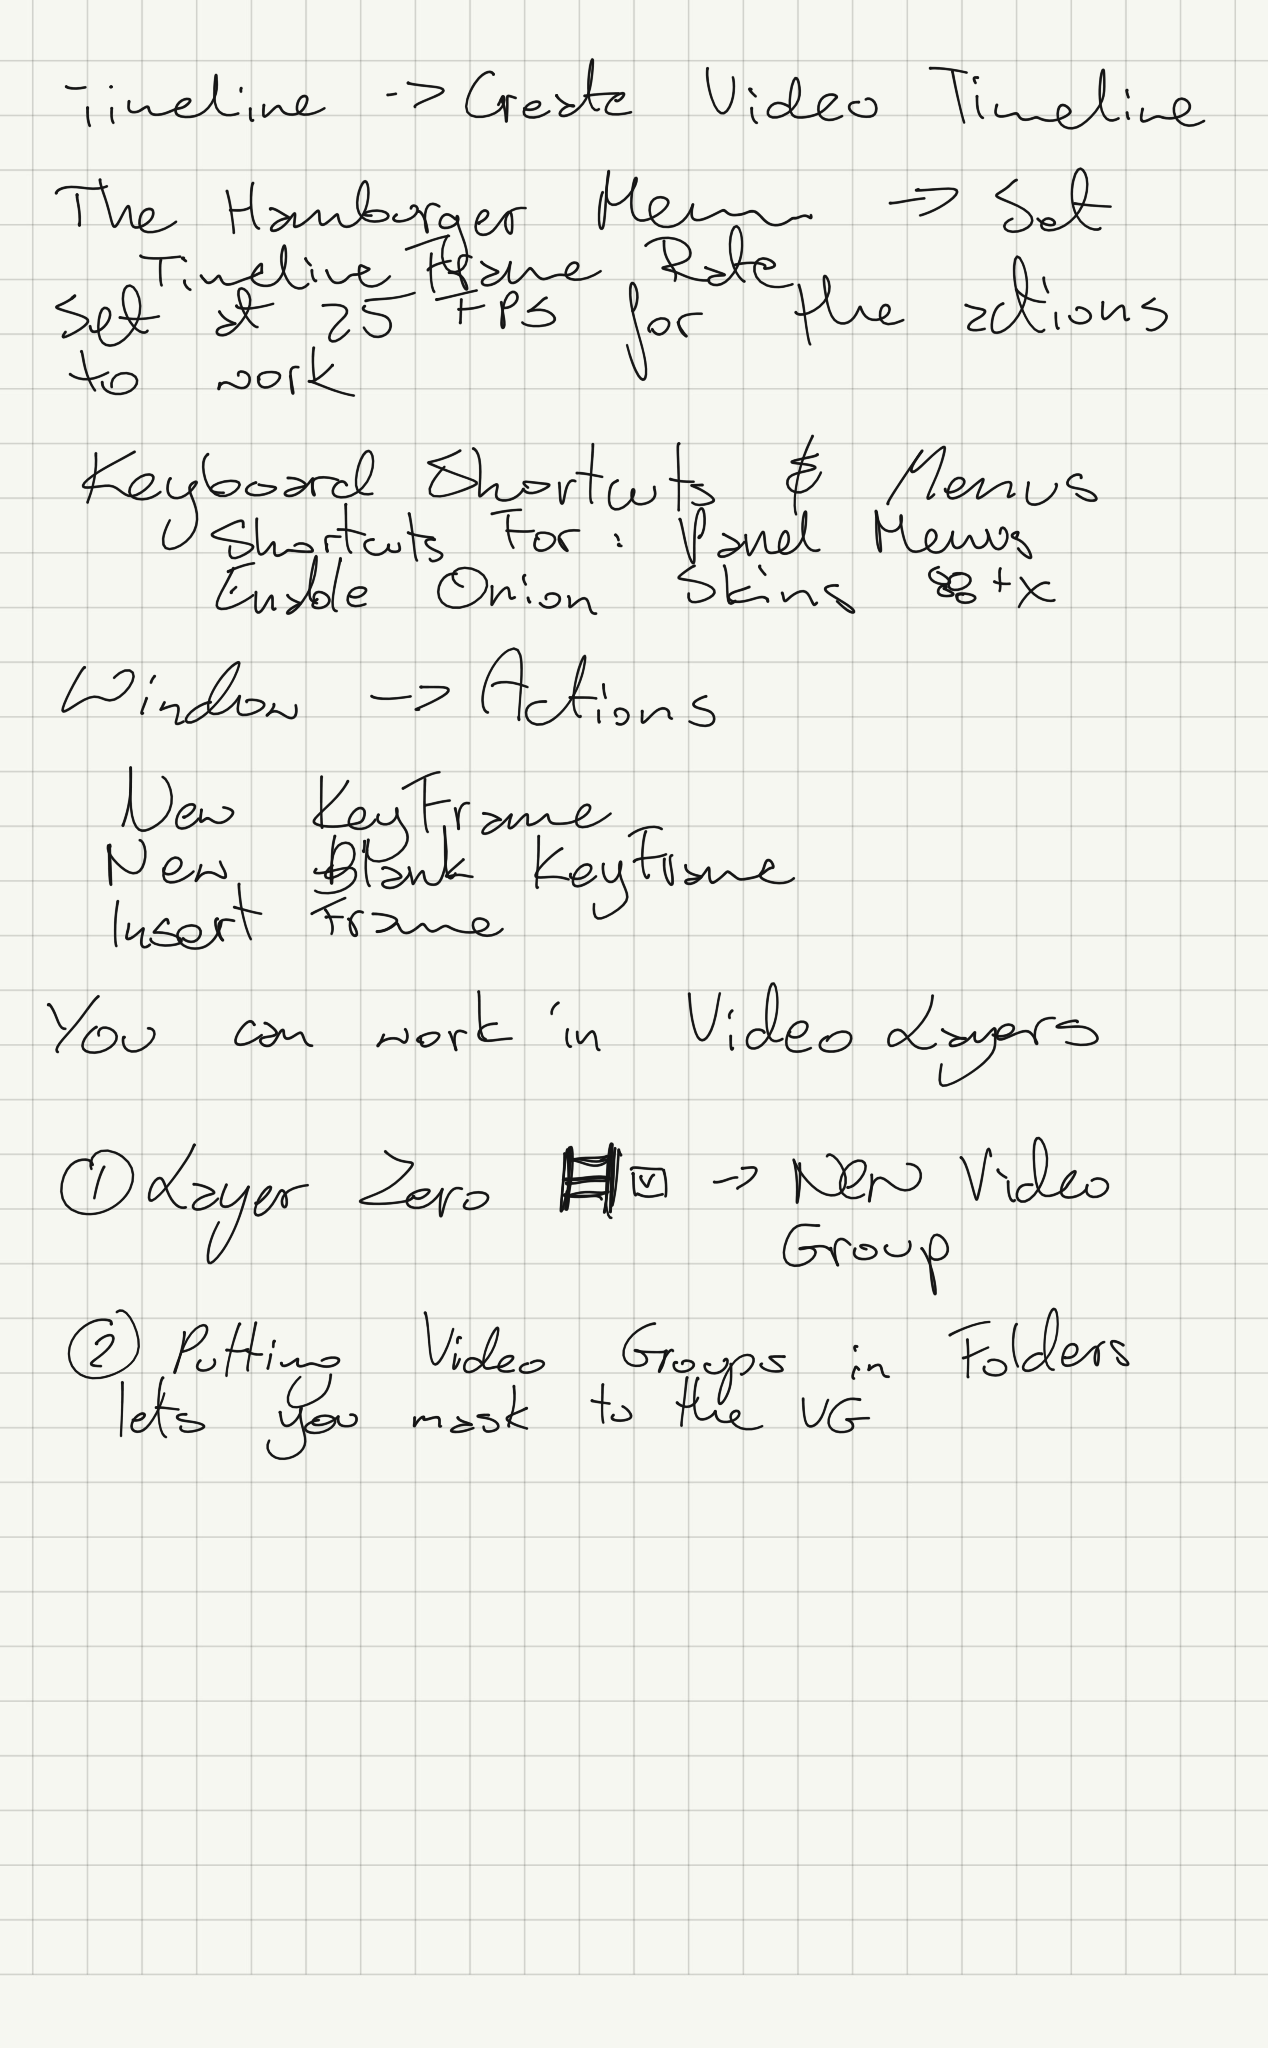 Timeline -> Create Video Timeline
The Hamburger Menu -> Set
Timeline Frame Rate
Set at 25 FPS for the actions
to work
Keyboard Shortcuts & Menus
Shortcuts For: Panel Menus
Enable Onion Skins ⌘+X
Window -> Actions
New KeyFrame
New Blank KeyFrame
Insert Frame
You can work in Video Layers
① Layer Zero -> New Video
Group
② Putting Video Groups in Folders
lets you mask to the VG